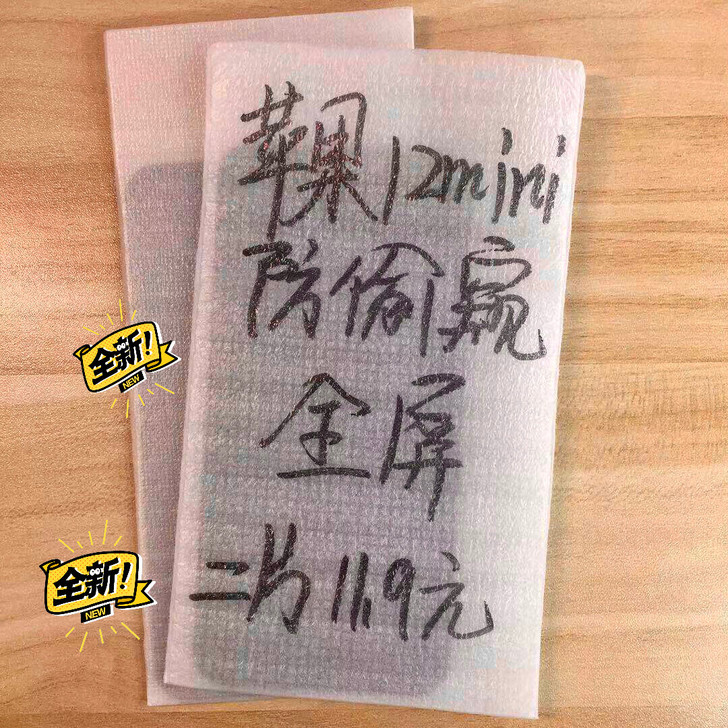 苹果12mini
防偷窥
全屏
二片11.9元
全新!
NEW
全新!
NEW